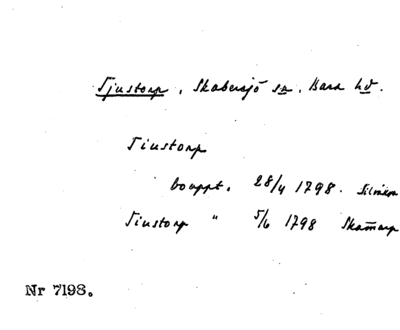 Tjustorp, Skabersjö sn, Bara hd.
Tiustorp
bouppt. 28/4 1798.
Tiustorp " 5/6 1798 Skattarp
Nr 7198.